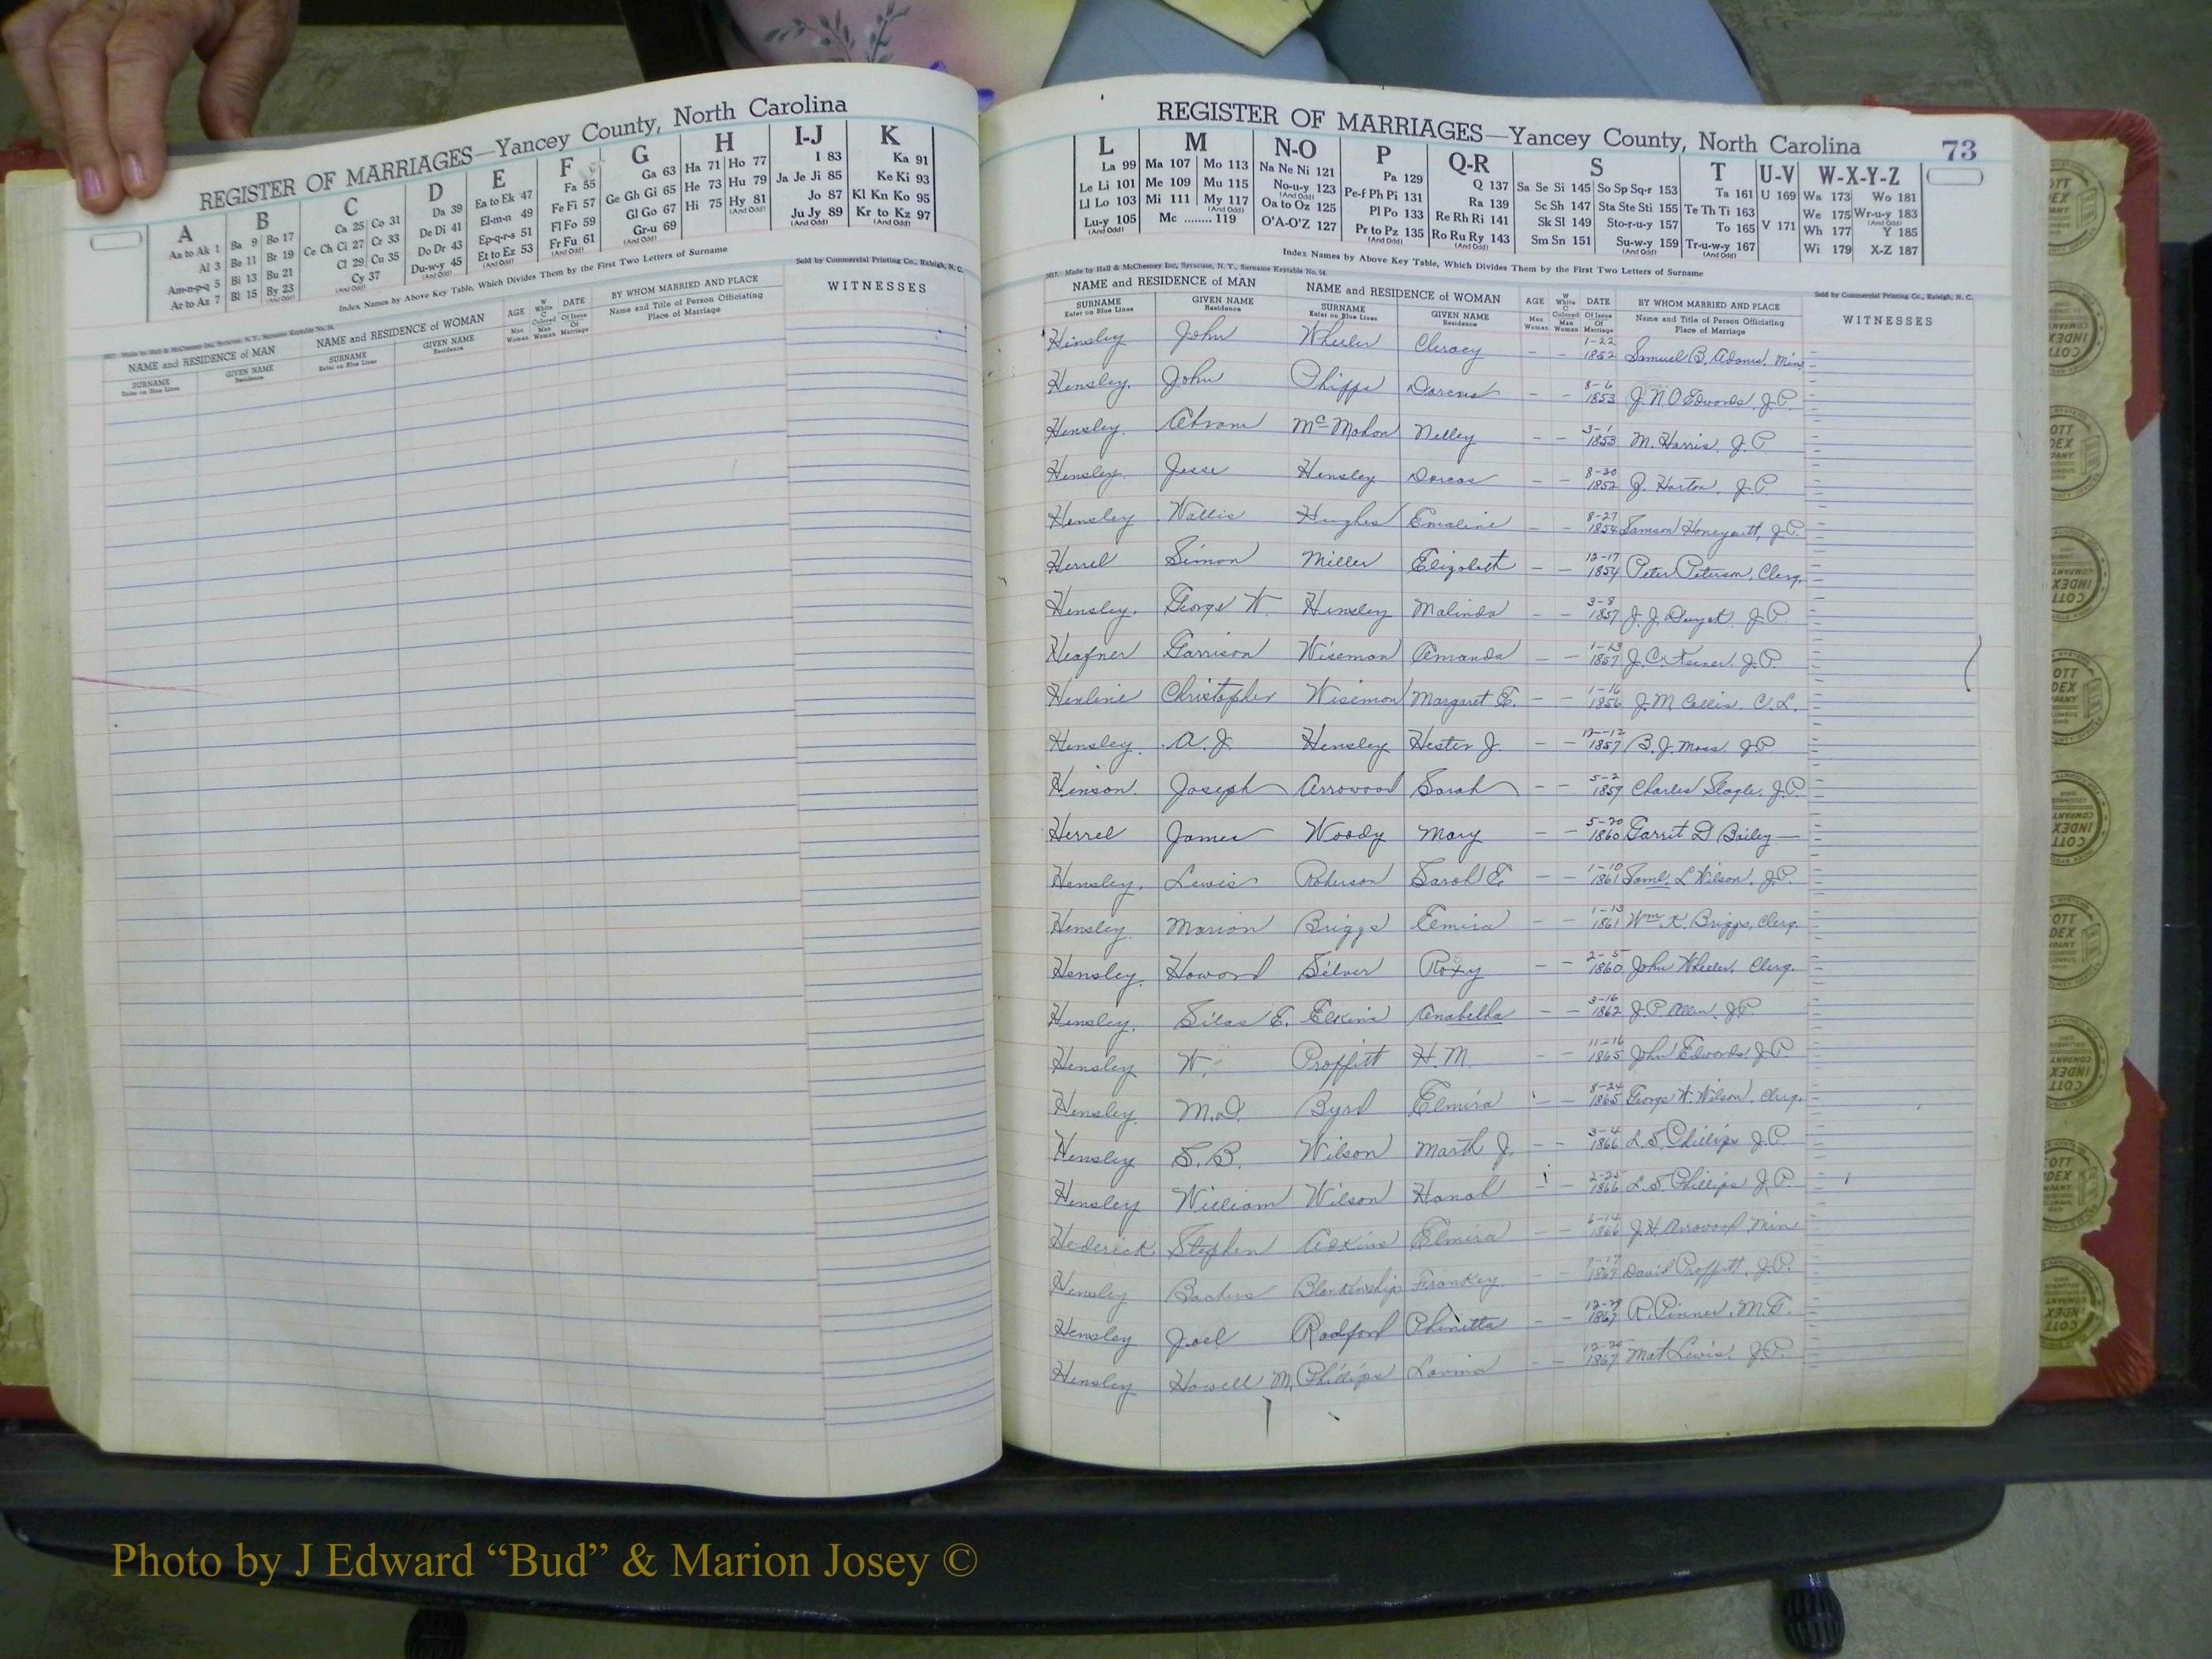 REGISTER OF MARRIAGES—Yancey County, North Carolina
A B C D E F G H I-J K
Aa to Ak 1 Ba 9 Bo 17 Ca 25 Co 31 Da 39 Ea to Ek 47 Fa 55 Ga 63 Ha 71 Ho 77 I 83 Ka 91
Al 3 Be 11 Br 19 Ce Ch Ci 27 Cr 33 De Di 41 El-m-n 49 Fe Fi 57 Ge Gh Gi 65 He 73 Hu 79 Ja Je Ji 85 Ke Ki 93
Am-n-p-q 5 Bi 13 Bu 21 Cl 29 Cu 35 Do Dr 43 Ep-q-r-s 51 Fl Fo 59 Gl Go 67 Hi 75 Hy 81 (And Odd) Jo 87 Kl Kn Ko 95
Ar to Az 7 Bl 15 By 23 (And Odd) Cy 37 (And Odd) Du-w-y 45 (And Odd) Et to Ez 53 (And Odd) Fr Fu 61 (And Odd) Gr-u 69 (And Odd) Ju Jy 89 (And Odd) Kr to Kz 97 (And Odd)
Index Names by Above Key Table, Which Divides Them by the First Two Letters of Surname
Sold by Commercial Printing Co., Raleigh, N. C.
Made by Hall & McChesney Inc, Syracuse, N. Y., Surname Keytable No. 54.
NAME and RESIDENCE of MAN NAME and RESIDENCE of WOMAN AGE W White C Colored DATE BY WHOM MARRIED AND PLACE WITNESSES
SURNAME Enter on Blue Lines GIVEN NAME Residence SURNAME Enter on Blue Lines GIVEN NAME Residence Man Woman Man Woman Of Issue Of Marriage Name and Title of Person Officiating Place of Marriage
REGISTER OF MARRIAGES—Yancey County, North Carolina 73
L M N-O P Q-R S T U-V W-X-Y-Z
La 99 Ma 107 Mo 113 Na Ne Ni 121 Pa 129 Q 137 Sa Se Si 145 So Sp Sq-r 153 Ta 161 U 169 Wa 173 Wo 181
Le Li 101 Me 109 Mu 115 No-u-y 123 (And Odd) Pe-f Ph Pi 131 Ra 139 Sc Sh 147 Sta Ste Sti 155 Te Th Ti 163 We 175 Wr-u-y 183 (And Odd)
Ll Lo 103 Mi 111 My 117 (And Odd) Oa to Oz 125 Pl Po 133 Re Rh Ri 141 Sk Sl 149 Sto-r-u-y 157 To 165 V 171 Wh 177 Y 185
Lu-y 105 (And Odd) Mc ........ 119 O'A-O'Z 127 Pr to Pz 135 (And Odd) Ro Ru Ry 143 (And Odd) Sm Sn 151 Su-w-y 159 (And Odd) Tr-u-w-y 167 (And Odd) Wi 179 X-Z 187
Index Names by Above Key Table, Which Divides Them by the First Two Letters of Surname
Made by Hall & McChesney Inc, Syracuse, N. Y., Surname Keytable No. 54.
Sold by Commercial Printing Co., Raleigh, N. C.
NAME and RESIDENCE of MAN NAME and RESIDENCE of WOMAN AGE W White C Colored DATE BY WHOM MARRIED AND PLACE WITNESSES
SURNAME Enter on Blue Lines GIVEN NAME Residence SURNAME Enter on Blue Lines GIVEN NAME Residence Man Woman Man Woman Of Issue Of Marriage Name and Title of Person Officiating Place of Marriage
Hensley John Wheeler - - 1-22 1852 Samuel B. Adams, Min
Hensley. John Phipps Darcus - - 8-6 1853 J. N. O Edwards, J.P.
Hensley. Abram McMahon Nelley - - 3-1 1853 M. Harris, J.P.
Hensley. Jesse Hensley Dorcas - - 8-30 1852 J. Horton, J.P.
Hensley Wallis Hughes Emaline - - 8-27 1854 Samson Honeycutt, J.P.
Herrel Simon Miller Elizabeth - - 12-17 1854 Peter Peterson, Clerg.
Hensley. George W. Hensley Malinda - - 3-8 1857 J. J. J.P.
Heafner Garrison Wiseman Amanda - - 1-13 1857 J. C. J.P.
Henline Christopher Wiseman Margaret E. - - 1-16 1856 J. M. Collis. C. L.
Hensley. A. J. Hensley Hester J. - - 12-12 1857 B. J. Moss. J.P
Henson. Joseph Arrowood Sarah - - 5-2 1859 Charles Slagle. J.P.
Herrel James Woody Mary - - 5-20 1860 Garrit D Bailey —
Hensley. Lewis Roberson Sarah E. - - 1-10 1861 Saml. L Wilson, J.P.
Hensley. Marion Briggs Elmira - - 1-13 1861 Wm K. Briggs, Clerg.
Hensley. Howard Silver Roxy - - 2-5 1860 John Wheeler, Clerg.
Hensley. Silas E. Elkins Anabella - - 3-16 1862 J. P Allen, J.P
Hensley W. Proffitt H. M. - - 11-16 1865 John Edwards, J.P.
Hensley. M. D. Byrd Elmira - - 8-24 1865 George W. Wilson, Clerg.
Hensley S. B. Wilson Marth J. - - 3-4 1866 L. S. Phillips J.P.
Hensley William Wilson Hanah - - 2-25 1866 L. S. Phillips J.P.
Hederick Stephen Adkins Elmira - - 1866 J H Arrowood, Min
Hensley Bachus Blankenship Frankey. - - David Proffitt, J.P.
Hensley Joel Radford - - 1867 R. Pinner, M. G.
Hensley Howell M. Phillips Lavina - - 1867 Mat Lewis. J.P.
Photo by J Edward “Bud” & Marion Josey ©